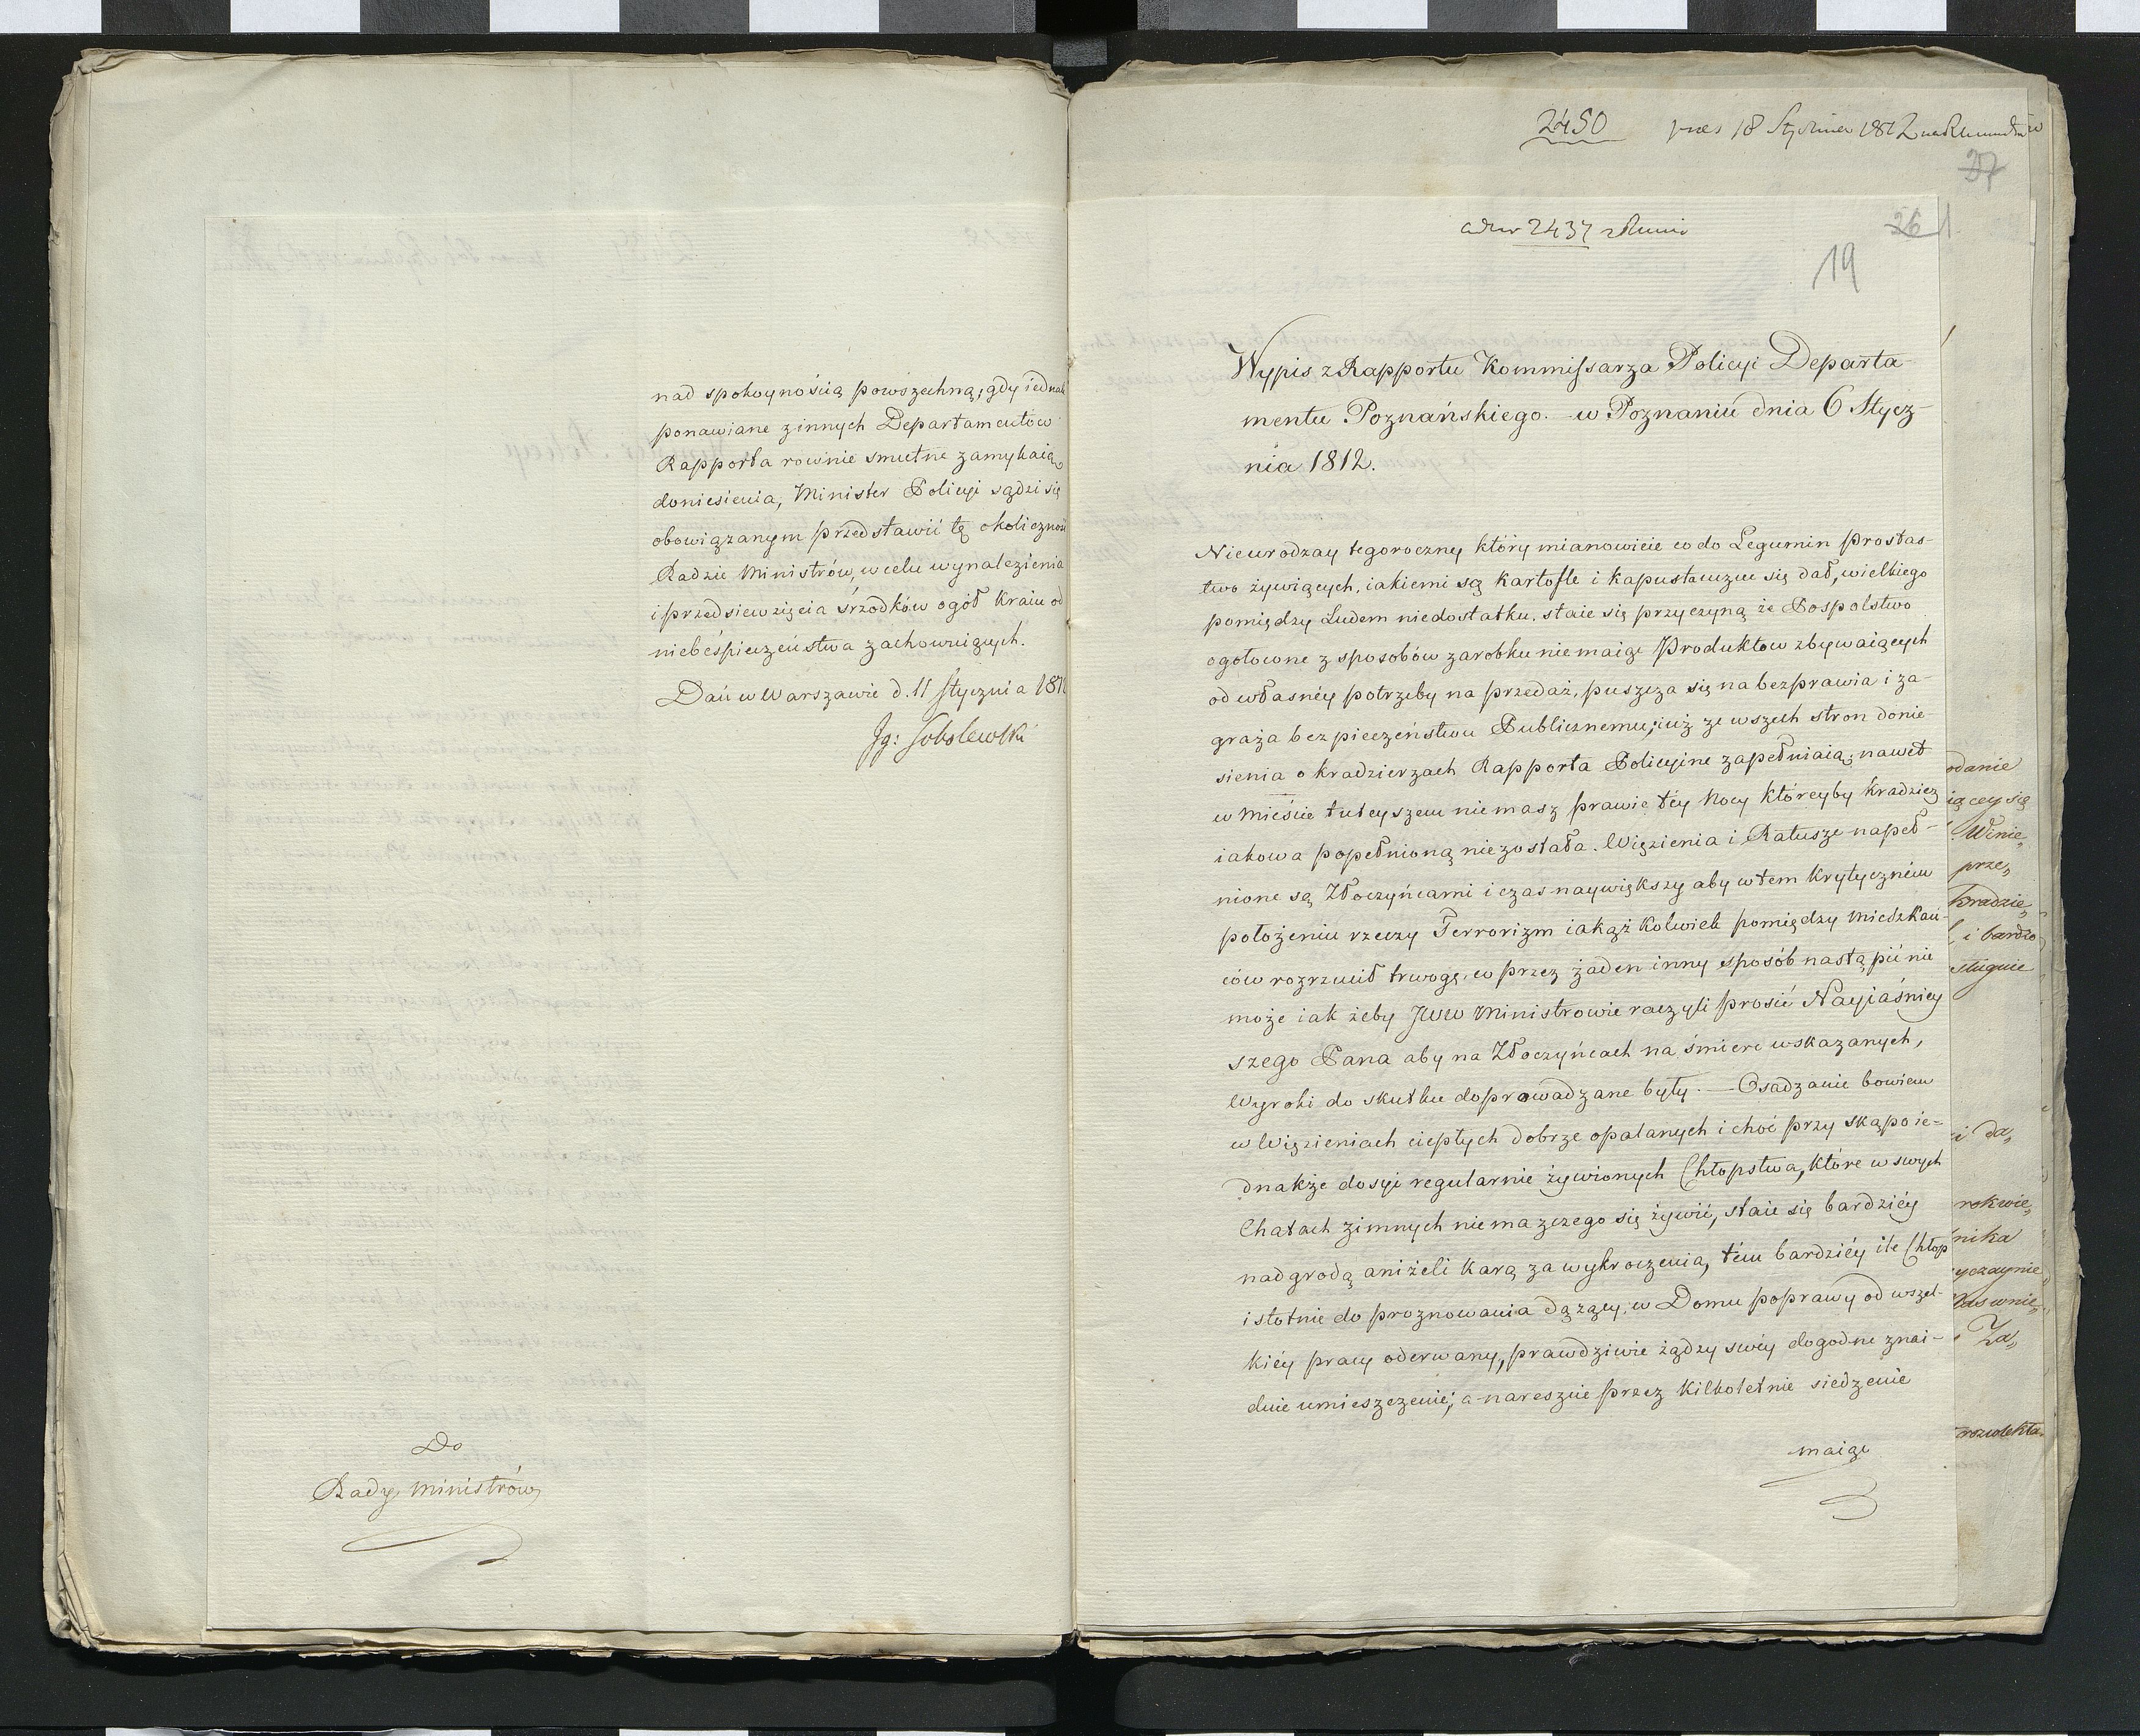 nad spokoynością powszechną, gdy iednak
ponawiane z innych Departamentów
Rapporta rownie smutne zamykaią
doniesienia, Minister Policyi sądzi się
obowiązanym przedstawić tę okoliczność
Radzie Ministrów, w celu wynalezienia
i przedsiewzięcia śrzodków ogół Kraiu od
niebéśpieczeństwa zachownigcych.
Dań w Warszawie d. 11 Stycznia 181
Ig: Sobolewski
Do
Rady Ministrów
2450 18 Stycznia 1812
37
2437
26
19
Wypis z Rapportu Kommissarza Policyi Departa-
mentu Poznańskiego. w Poznaniu dnia 6 Stycz-
nia 1812.
Nieurodzay tegoroczny który mianowicie co do Legumin prostas-
two żywiących, iakiemi są Kartofle i Kapusta czuć się dał, wielkiego
pomiędzy Ludem niedostatku, staie się przyczyną że Pospolstwo
ogołocone z sposobów zarobku nie maiąc Produktow zbywaiących
od własnéy potrzeby na przedaż, puszcza się na bezprawia i za-
graża bezpieczeństwu Publicznemu; iuż ze wszech stron donie-
sienia o kradzierzach Rapporta Policyine zapełniaią; nawet
w mieście tuteyszem nie masz prawie téy Nocy któreyby kradzież
iakowa popełnioną nie została. Więzienia i Ratusze napeł-
nione są Złoczyńcami i czas naywiększy aby w tem Krytyczném
położeniu rzeczy Terrorizm iakąż kolwiek pomiędzy Mieszkań-
ców rozrzucił trwogę, co przez żaden inny sposób nastąpić nie
może iak żeby JWW Ministrowie raczyli prosić Nayiaśniey
szego Pana aby na Złoczyńcach na śmierc wskazanych,
Wyroki do skutku doprowadzane były. — Osadzanie bowiem
w Więzieniach ciepłych dobrze opalanych i choć przy skąpo ie-
dnakże dosyć regularnie żywionych Chłopstwa, które w swych
Chatach zimnych nie ma z czego się żywić, staie się bardziéy
nadgrodą aniżeli Karą za wykroczenia, tém bardziéy ile Chłop
istotnie do proznowania dążący, w Domu poprawy od wszel-
kiéy pracy oderwany, prawdziwie żądzy swéy dogodne znai-
duie umieszczenie; a nareszcie przez Kilkoletnie siedzenie
maiąc
odanie
iącey się
Winie„
prze„
kradzie„
i bardzo
da„
rokwie„
nika
yczaynie
Za„